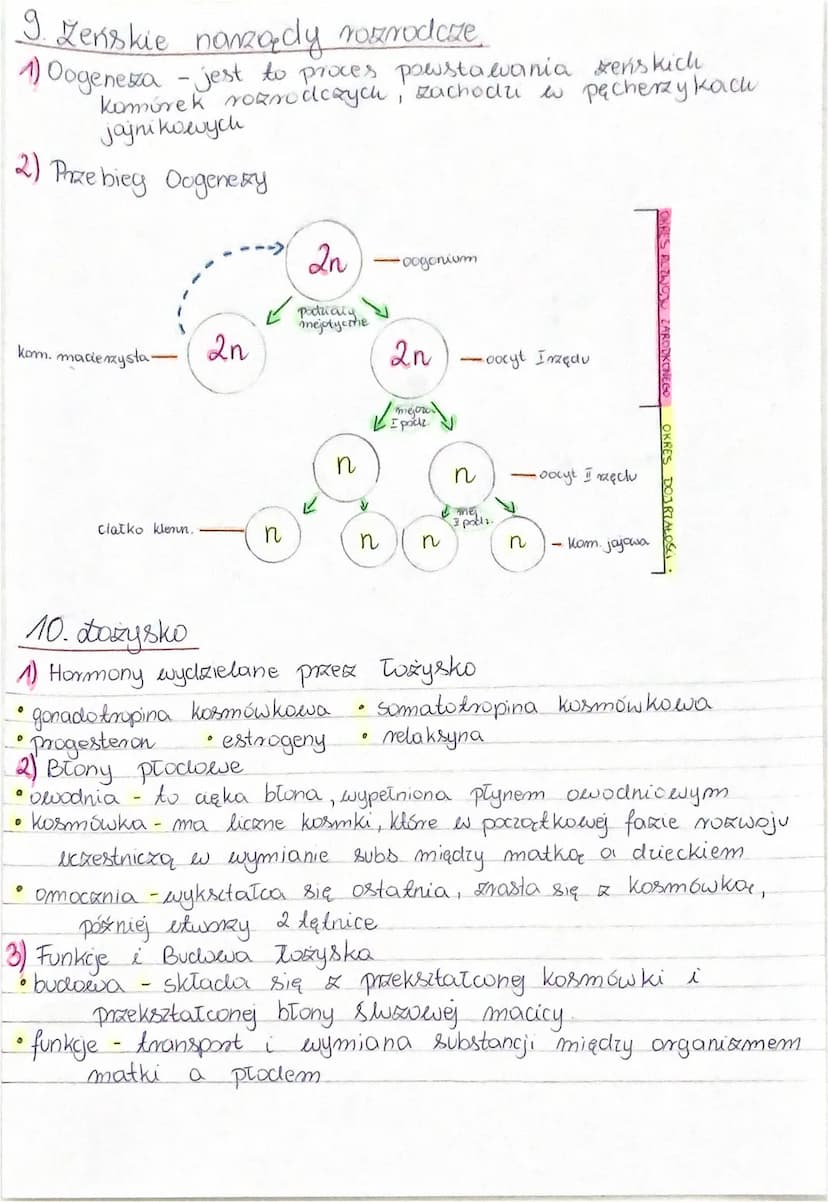 9. Żeńskie narządy rozrodcze
1) Oogeneza - jest to proces powstawania żeńskich
komórek rozrodczych, zachodzi w pęcherzykach
jajnikowych
2) Przebieg Oogenezy
2n
oogonium
podziały
mejotyczne
kom. macierzysta
2n
2n
oocyt I rzędu
mejoza
I podz.
n
n
oocyt II rzędu
ciałko kierun.
n
n
n
mej
II podz.
n
kom. jajowa
OKRES ROZWOJU ZARODKOWEGO
OKRES DOJRZAŁOŚCI
10. Łożysko
1) Hormony wydzielane przez łożysko
• gonadotropina kosmówkowa • somatotropina kosmówkowa
• progesteron • estrogeny • relaksyna
2) Błony płodowe
• owodnia - to cięka błona, wypełniona płynem owodniowym
• kosmówka - ma liczne kosmki, które w początkowej fazie rozwoju
uczestniczą w wymianie subs między matką a dzieckiem
• omocznia - wykształca się ostatnia, zrasta się z kosmówką,
później utworzy 2 tętnice
3) Funkcje i Budowa Łożyska
• budowa - składa się z przekształconej kosmówki i
przekształconej błony śluzowej macicy
• funkcje - transport i wymiana substancji między organizmem
matki a płodem